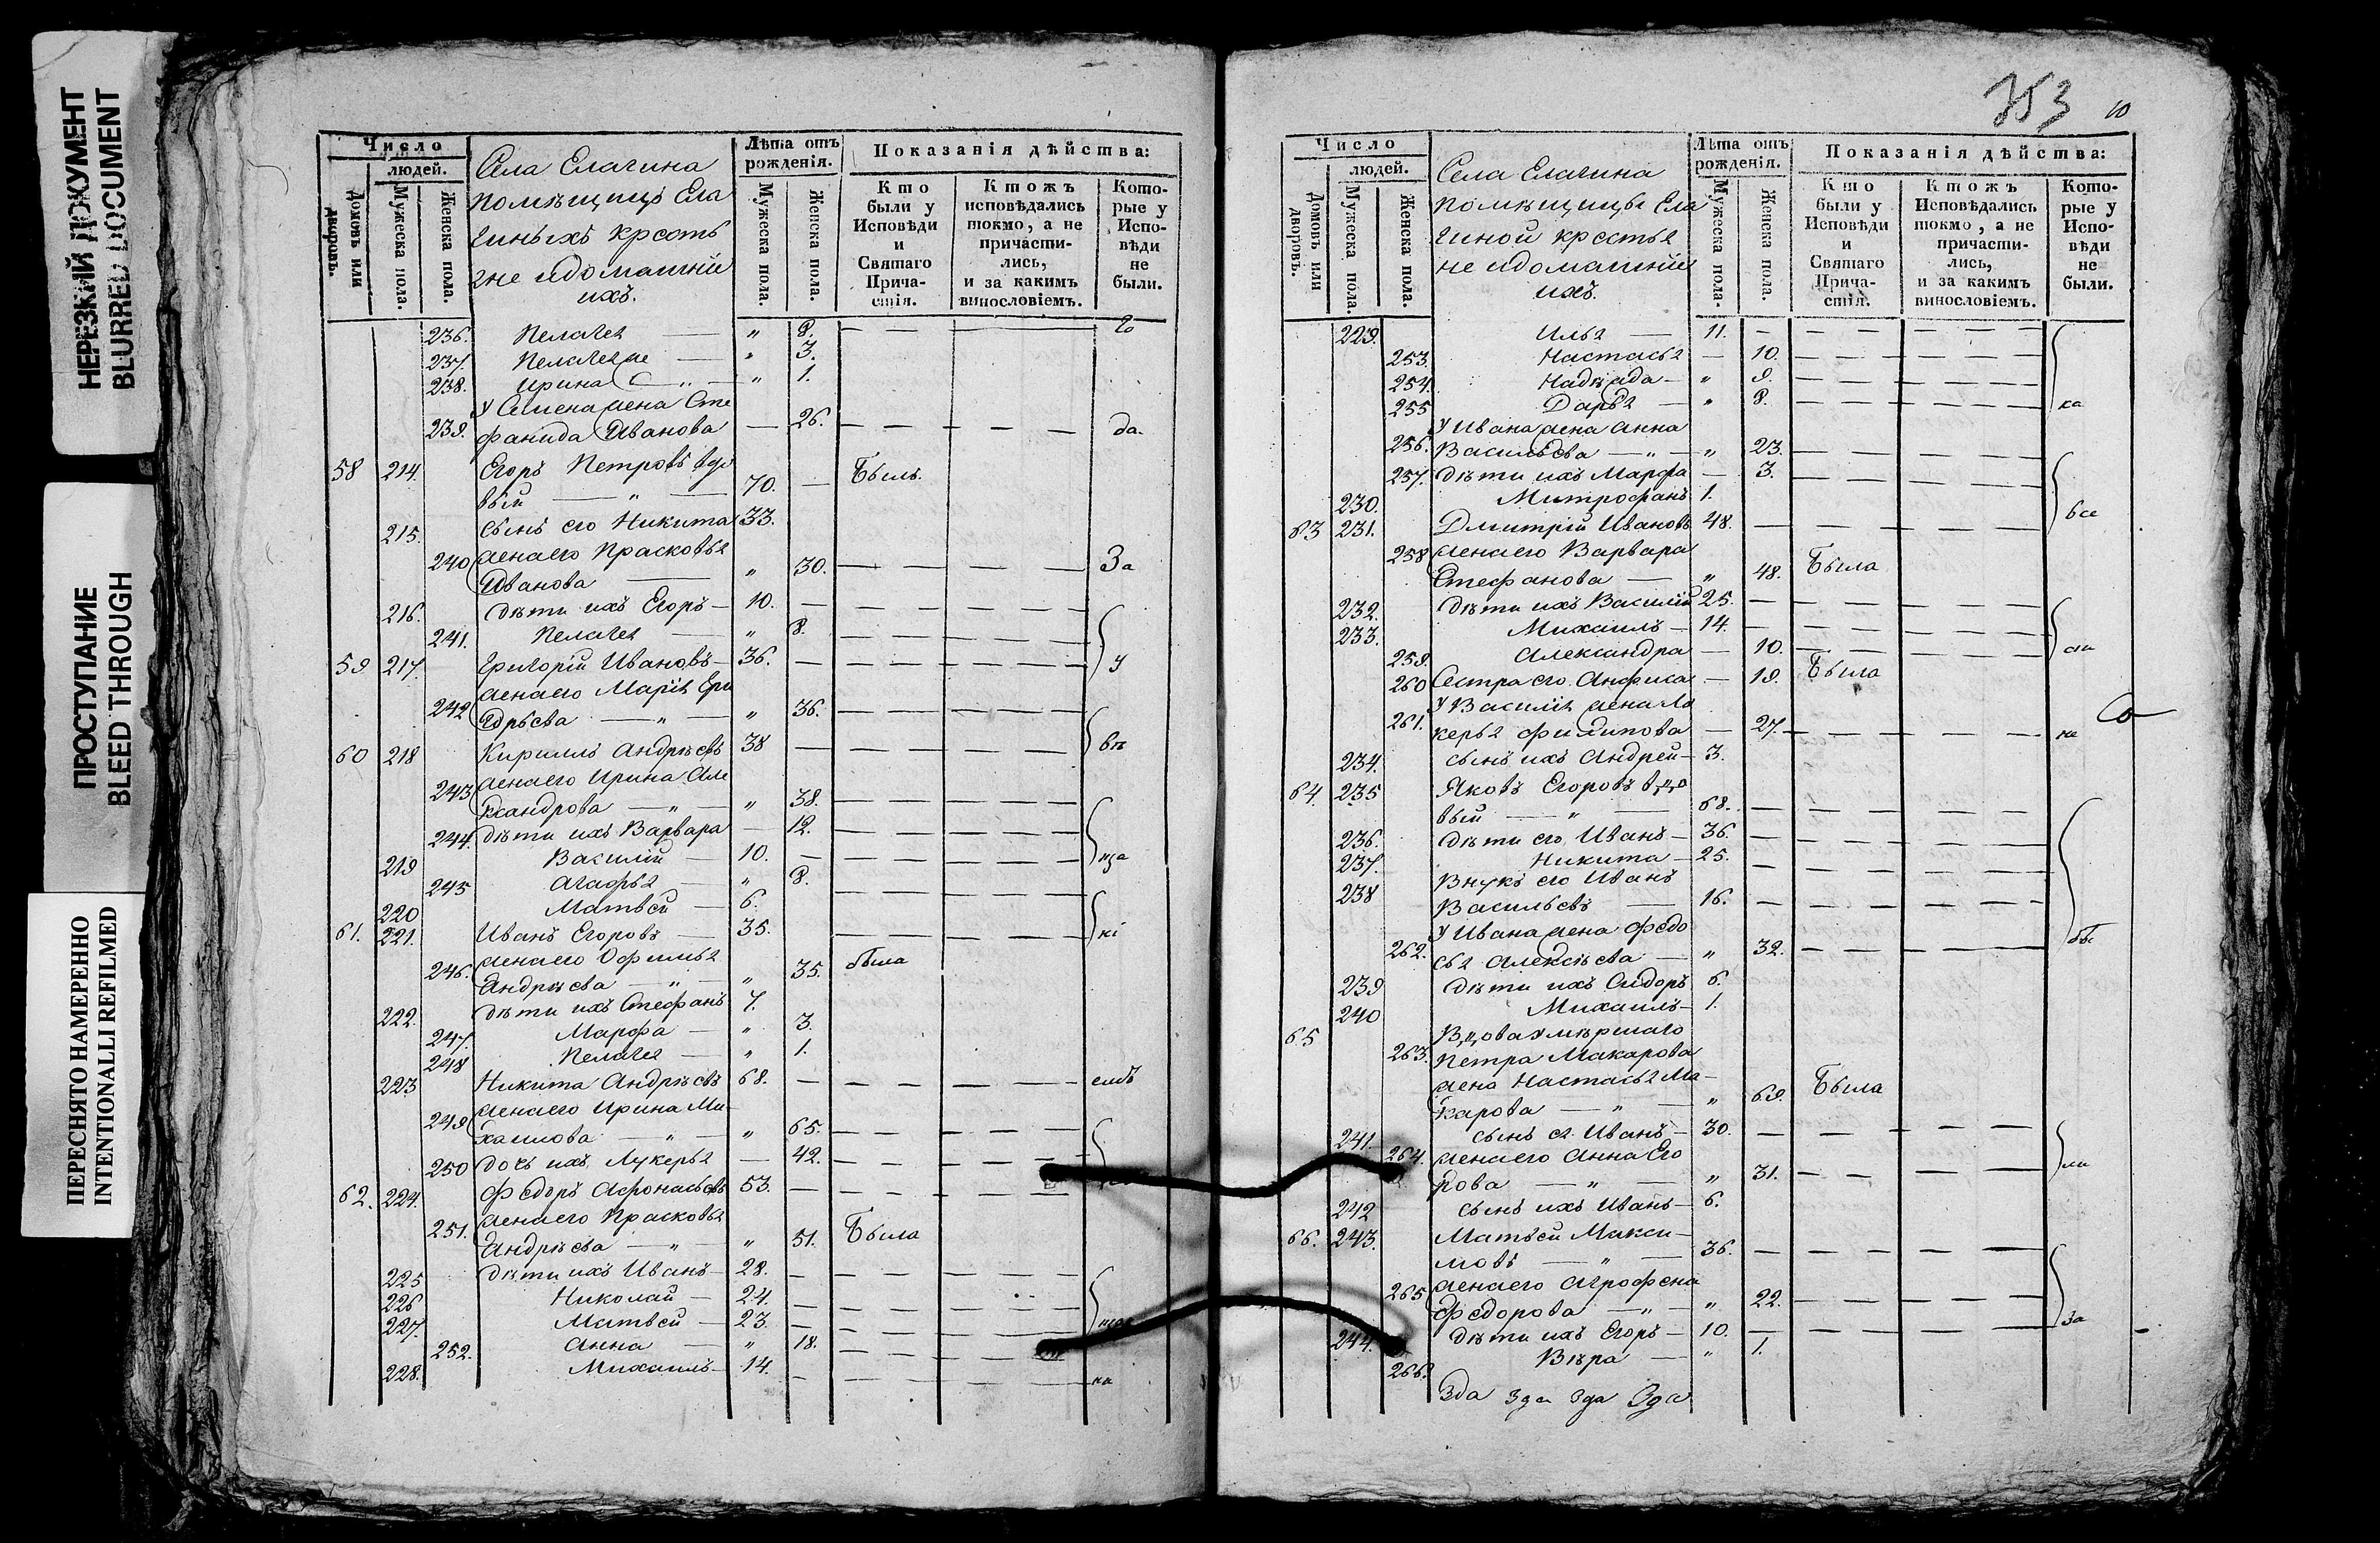 НЕРЕЗКИЙ ДОКУМЕНТ
BLURRED DOCUMENT
ПРОСТУПАНИЕ
BLEED THROUGH
ПЕРЕСНЯТО НАМЕРЕННО
INTENTIONALLI REFILMED
Число
людей.
Домовъ или дворовъ.
Мужеска пола.
Женска пола.
Села Елагина
помѣщицъ Ела
гиныхъ крестъ
яне идомашніи
ихъ.
Лѣта отъ рожденія.
Мужеска пола.
Женска пола.
Показанія дѣйства:
Кто были у Исповѣди и Святаго Причастія.
Ктожъ исповѣдались токмо, а не причастились, и за какимъ винословіемъ.
Которые у Исповѣди не были.
236. Пелагея — " 8.
237. Пелагея же — " 3.
238. Ирина — " 1.
У Семена жена Сте
239. фанида Иванова — 26. да.
58 214. Егоръ Петровъ вдо
вый — " — 70. — Былъ.
215. сынъ его Никита 33.
240 жена его Прасковья
Иванова — " 30. За
216. дѣти ихъ Егоръ — 10.
241. Пелагея — " 8.
59 217. Григорій Ивановъ — 36. у
жена его Марія Гри
242 горьева — " — " 36.
60 218 Кириллъ Андрѣевъ 38 вп
243 жена его Ирина Але
ксандрова — " — " 38.
244. дѣти ихъ Варвара — 12.
219 Василій — 10.
245 Агафья — " 8.
220 Матвей — 6.
61. 221. Иванъ Егоровъ — 35.
жена его Офимья
246. Андрѣева — " — " 35. была
222. дѣти ихъ Стефанъ 7.
247. Марфа — " 3.
248 Пелагея — " 1.
223 Никита Андрѣевъ 68.
жена его Ирина Ми-
249 хаилова — " — " 65.
250 дочь ихъ Лукерья — 42.
62. 224. Федоръ Афонасьевъ 53.
жена его Прасковья
251. Андрѣева — " — " 51. Была
225 дѣти ихъ Иванъ — 28.
226 Николай — 24.
227. Матвей — 23.
252. Анна — " 18.
228. Михаилъ — 14. на
353 10
Число
людей.
Домовъ или дворовъ.
Мужеска пола.
Женска пола.
Села Елагина
помѣщицы Ела
гиной крестья
не идомашніи
ихъ.
Лѣта отъ рожденія.
Мужеска пола.
Женска пола.
Показанія дѣйства:
Кто были у Исповѣди и Святаго Причастія.
Ктожъ Исповѣдались токмо, а не причастились, и за какимъ винословіемъ.
Которые у Исповѣди не были.
229. Илья — 11.
253. Настасья — 10.
254. Надѣжда — " 9.
255 Дарья — " 8. ка
У Ивана жена Анна
256. Васильева — " — " 23.
257. дѣти ихъ Марфа — 3.
230. Митрофанъ 1.
63 231. Дмитрій Ивановъ 48. все
258 жена его Варвара
Стефанова — " 48. Была
232. дѣти ихъ Василій 25.
233. Михаилъ — 14.
259. Александра — 10.
260 Сестра его Анфиса — 19. Была
У Василія жена Лу
261. керья Филипова — 27. не
234. сынъ ихъ Андрей — 3.
64. 235 Яковъ Егоровъ вдо
вый — " — 68.
236. дѣти его Иванъ — 36.
237. Никита — 25.
238 Внукъ его Иванъ
Васильевъ — 16.
У Ивана жена Федо
262. сья Алексѣева — " 32.
239 дѣти ихъ Сидоръ 6.
240 Михаилъ — 1.
65 Вдова умѣршаго
263. Петра Макарова
жена Настасья Ма-
карова — " — " 69. Была
241. сынъ ея Иванъ — 30.
264. жена его Анна Его
рова — " — " 31.
242 сынъ ихъ Иванъ — 6.
66. 243. Матвей Макси-
мовъ — " — 36.
265 жена его Агрофена
Федорова — " — " 22.
244. дѣти ихъ Егоръ — 10. за
266. Вѣра — " 1.